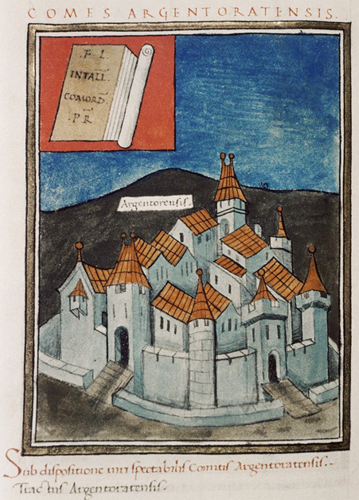 COMES ARGENTORATENSIS.
.F L.
INTALL.
COMORD.
.P R
Argentorensis.
Sub dispositione viri spectabilis Comitis Argentoratensis.
Tractus Argentoratensis.